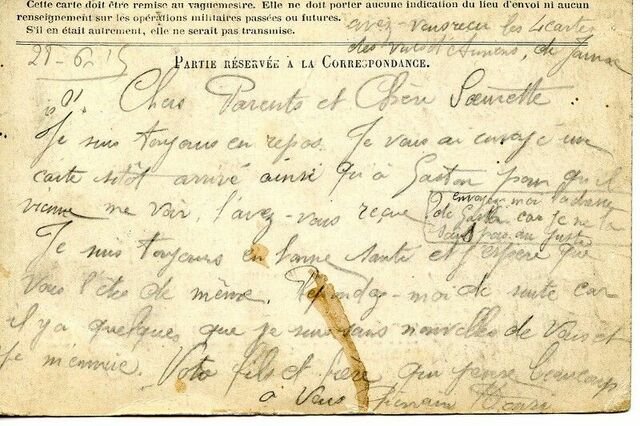 Cette carte doit être remise au vaguemestre. Elle ne doit porter aucune indication du lieu d'envoi ni aucun
renseignement sur les opérations militaires passées ou futures.
S'il en était autrement, elle ne serait pas transmise.
avez-vous reçu les 4 cartes
des vues d'Amiens, de
21-6-15
PARTIE RÉSERVÉE À LA CORRESPONDANCE.
Chers Parents et Chère Sœurette
Je suis toujours en repos. Je vous ai envoyé une
carte sitôt arrivé ainsi qu'à Gaston pour qu'il
vienne me voir, l'avez-vous reçue
envoyez moi l'adresse
de Gaston car je ne la
sais pas au juste
Je suis toujours en bonne santé et j'espère que
vous l'êtes de même. Répondez-moi de suite car
il y a quelques que je suis sans nouvelles de vous et
je m'ennuie. Votre fils et frère qui pense beaucoup
à vous